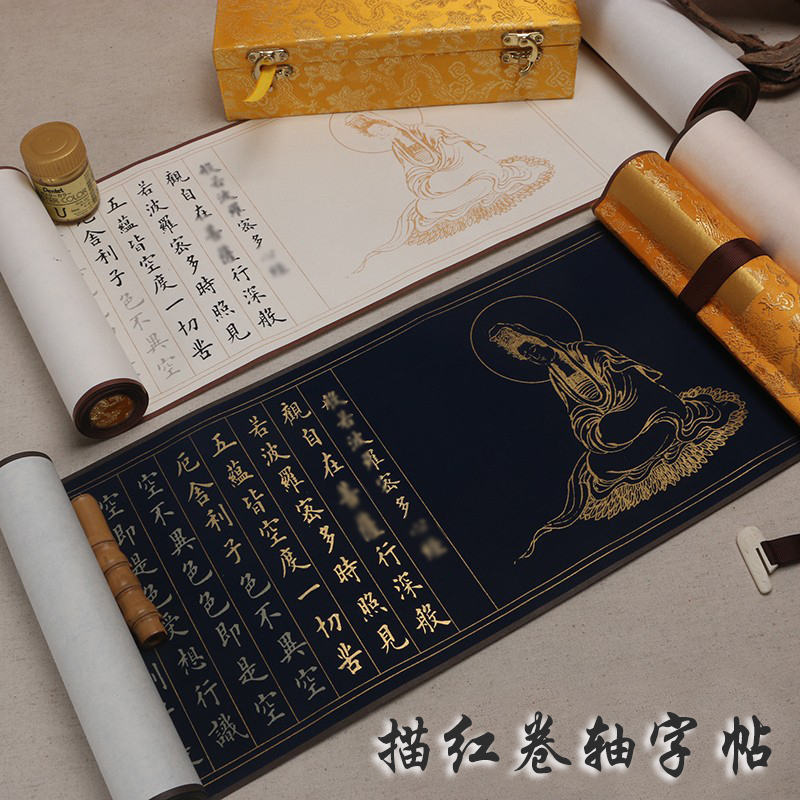 般若波羅密多
觀自在菩薩行深般
若波羅密多時照見
五蘊皆空度一切苦
厄舍利子色不異空
Pentel
COLOR
U
般若波羅密多
觀自在菩薩行深般
若波羅密多時照見
五蘊皆空度一切苦
厄舍利子色不異空
空不異色色即是空
空即是色受想行識
描红卷轴字帖